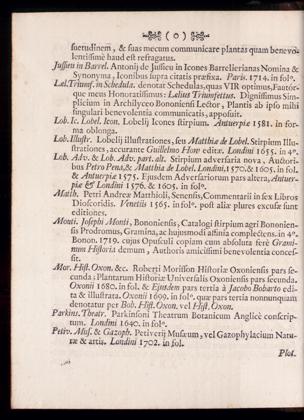 ( 0 )
suetudinem, & suas mecum communicare plantas quam benevo-
lentissime haud est refragatus.
Jussieu in Barrel. Antonij de Jussieu in Icones Barrelierianas Nomina &
Synonyma, Iconibus supra citatis præfixa. Paris. 1714. in folº.
Læl. Triumf. in Schedula. denotat Schedulas, quas VIR optimus, Fautór-
que meus Honoratissimus Lælius Triumfettus. Dignissimus Sim-
plicium in Archilyceo Bononiensi Lector, Plantis ab ipso mihi
singulari benevolentia communicatis, apposuit.
Lob. Ic. Lobel. Icon. Lobelij Icones stirpium. Antuerpiæ 1581. in for-
ma oblonga.
Lob. Illustr. Lobelij Illustrationes, seu Matthiæ de Lobel. Stirpium Illu-
strationes, accurante Guillelmo How editæ. Londini 1655. in 4º.
Lob. Adv. & Lob. Adv. part. alt. Stirpium adversaria nova, Auctori-
bus Petro Pena, & Matthia de Lobel. Londini, 1570. & 1605. in fol.
& Antuerpiæ 1575. Ejusdem Adversariorum pars altera, Antuer-
piæ & Londini 1576. & 1605. in folº.
Math. Petri Andreæ Matthioli, Senensis, Commentarii in sex Libros
Dioscoridis. Venetiis 1565. in folº. post aliæ plures excusæ sunt
editiones.
Monti. Josephi Monti, Bononiensis, Catalogi stirpium agri Bononien-
sis Prodromus, Gramina, ac hujusmodi affinia complectens. in 4º.
Bonon. 1719. cujus Opusculi copiam cum absoluta fere Grami-
num Historia demum, Authoris amicissimi benevolentia conces-
sit.
Mor. Hist. Oxon. &c. Roberti Morisson Historiæ Oxoniensis pars se-
cunda: Plantarum Historiæ Universalis Oxoniensis pars secunda.
Oxonii 1680. in fol. & Ejusdem pars tertia à Jacobo Bobarto edi-
ta & illustrata. Oxonii 1699. in folº. quæ pars tertia nonnunquam
denotatur per Bob. Hist. Oxon. vel Hist. Oxon.
Parkins. Theatr. Parkinsoni Theatrum Botanicum Anglicè conscrip-
tum. Londini 1640. in folº.
Petiv. Mus. & Gazoph. Petiverij Museum, vel Gazophylacium Natu-
ræ & artis. Londini 1702. in fol.
Plot.